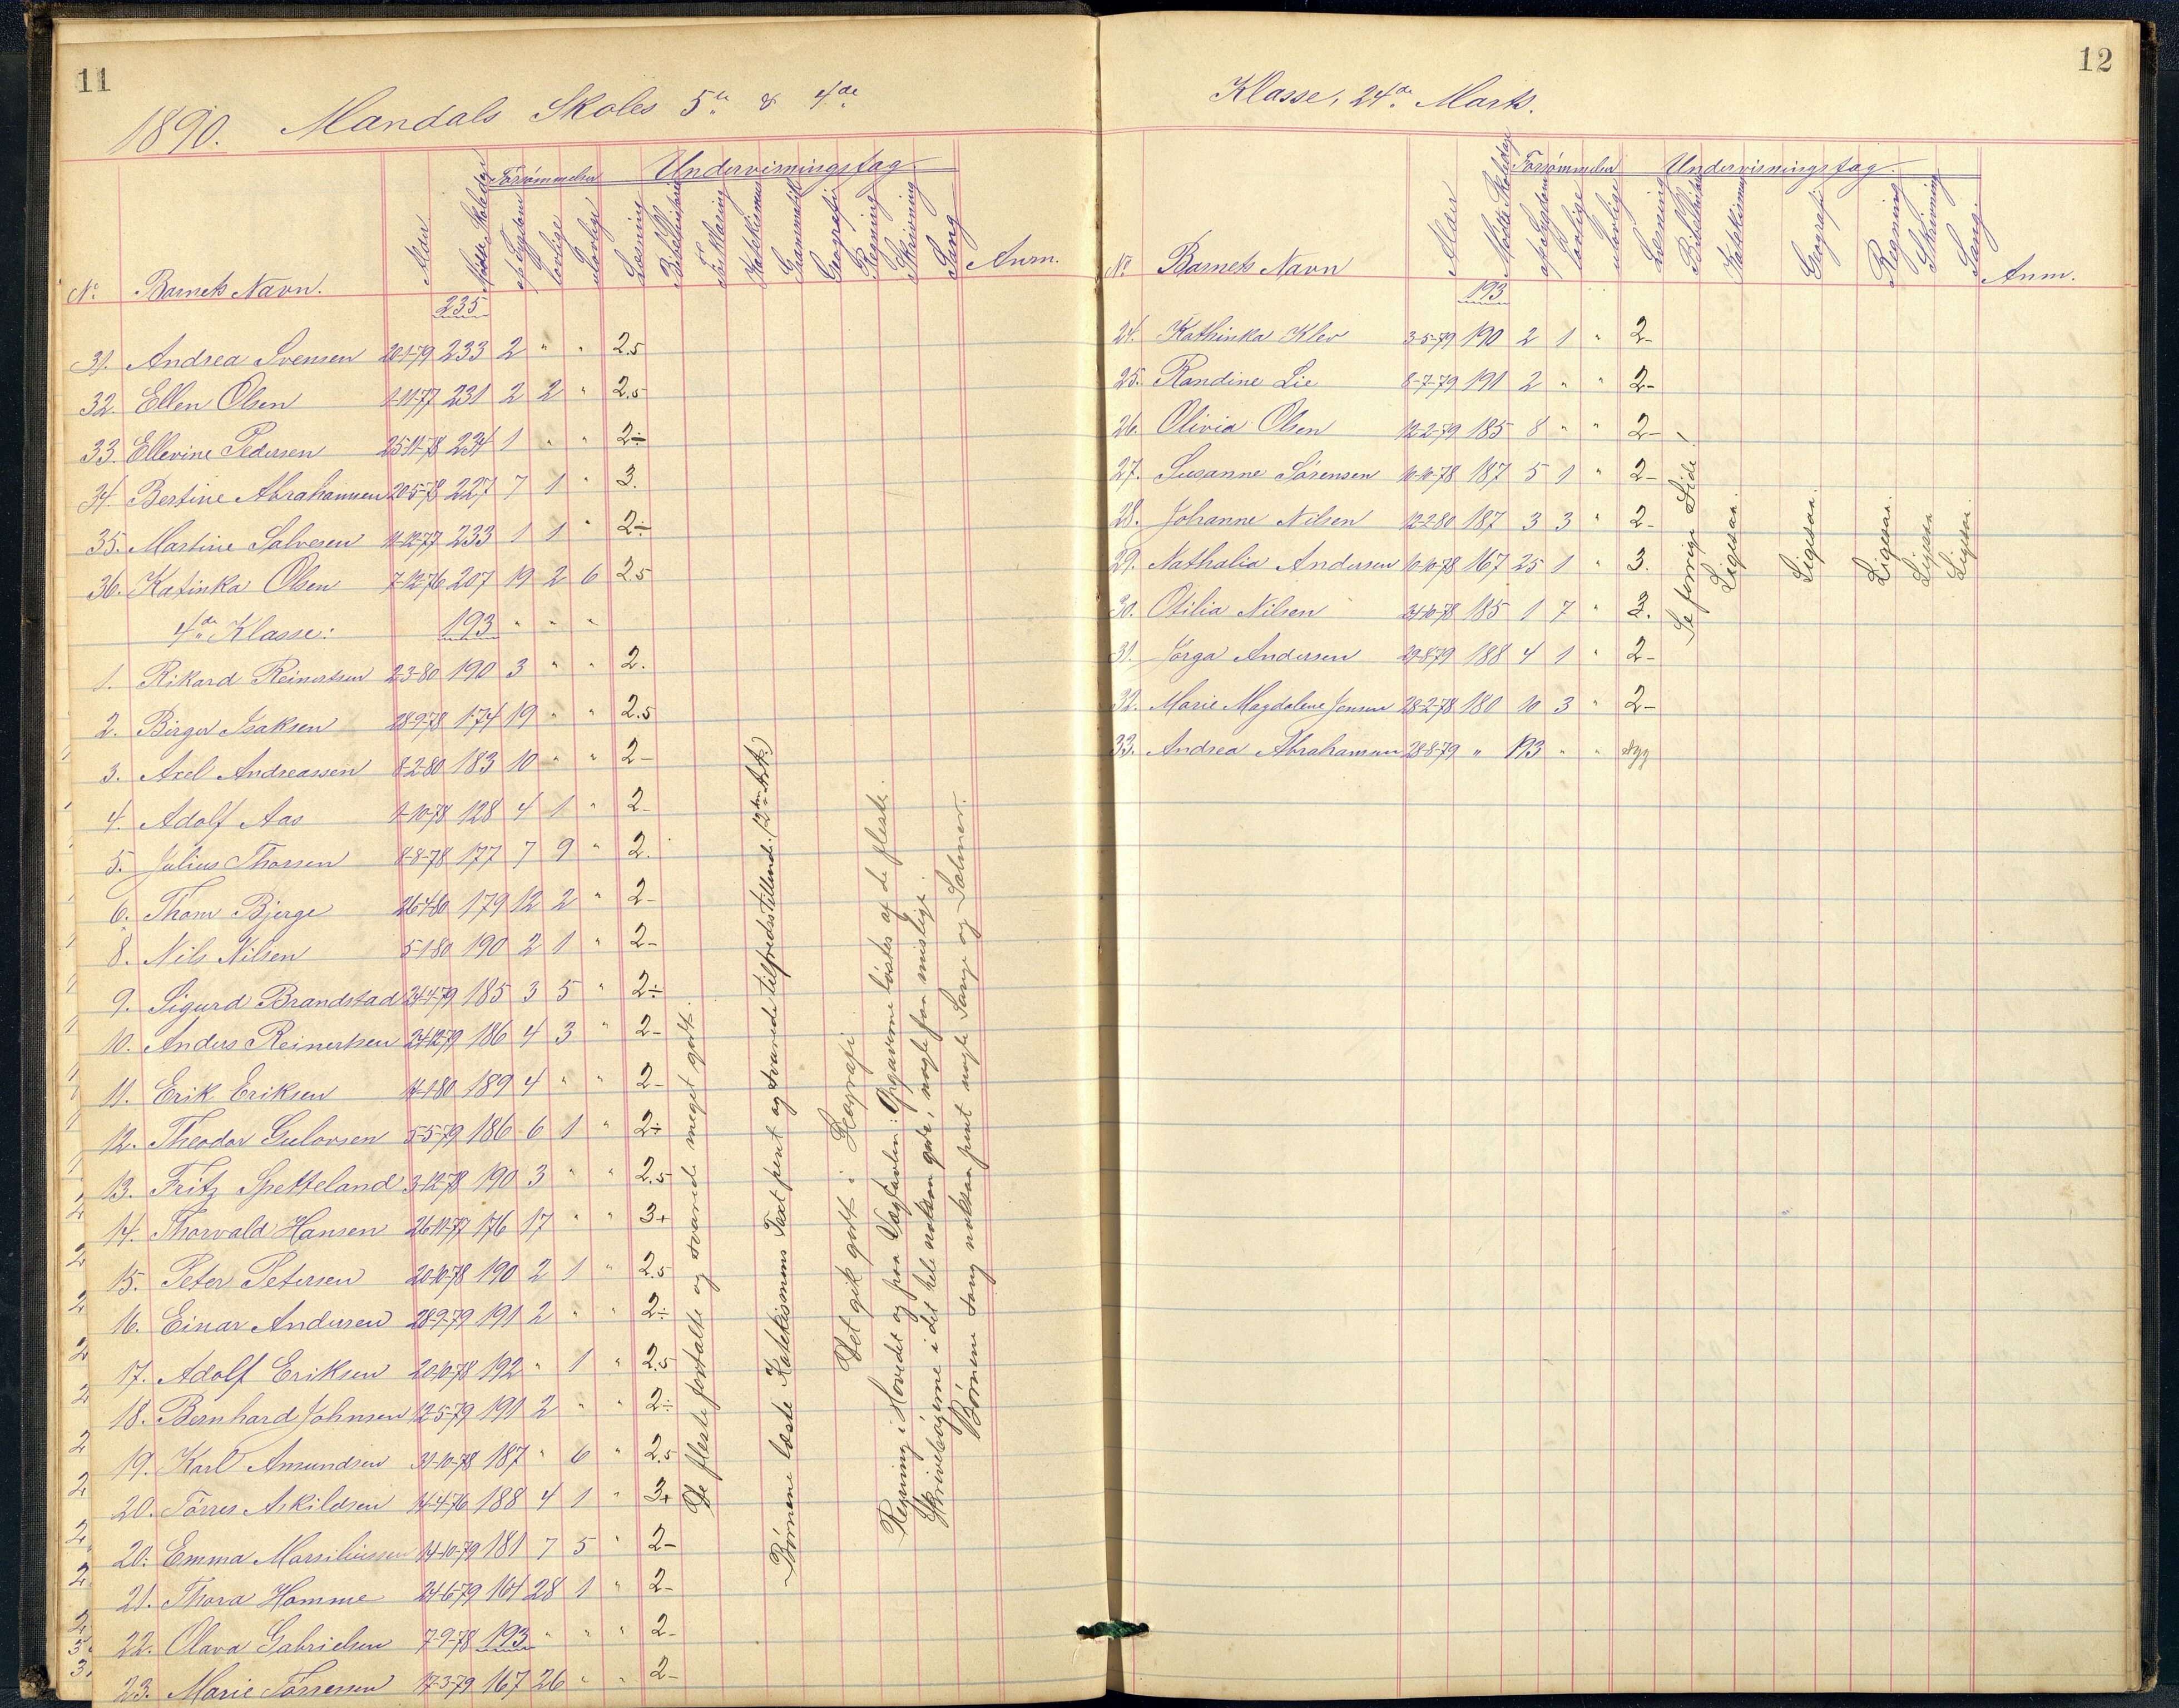 11
1890. Mandals Skoles 5te & 4de
Forsømmelser Undervisningsfag
No. Barnets Navn. Alder Mødte Skoledage af Sygdom lovlige ulovlige Læsning Bibelhistorie Forklaring Katekismus Grammatik Geografi Regning Skrivning Sang Anm.
235
31. Andrea Svensen 20-1-79 233 2 " " 2.5
32. Ellen Olsen 1-11-77 231 2 2 " 2.5
33. Ellevine Pedersen 25-11-78 234 1 " " 2÷
34. Bertine Abrahamsen 20-5-78 227 7 1 " 3.
35. Martine Salvesen 11-12-77 233 1 1 " 2÷
36. Katinka Olsen 7-12-76 207 19 2 6 2.5
4de Klasse: 193 " " "
1. Rikard Reinertsen 2-3-80 190 3 " " 2.
2. Birger Isaksen 28-9-78 174 19 " " 2.5
3. Axel Andreassen 8-2-80 183 10 " " 2-
4. Adolf Aas 1-10-78 128 4 1 " 2-
5. Julius Thorsen 8-8-78 177 7 9 " 2.
6. Thom Bjerge 26-4-80 179 12 2 " 2-
8. Nils Nilsen 5-1-80 190 2 1 " 2-
9. Sigurd Brandstad 24-4-79 185 3 5 " 2÷
10. Anders Reinertsen 24-12-79 186 4 3 " 2-
11. Erik Eriksen 14-1-80 189 4 " " 2-
12. Theodor Gulovsen 5-5-79 186 6 1 " 2÷
13. Fritz Spetteland 3-12-78 190 3 " " 2.5
14. Thorvald Hansen 26-11-77 176 17 " " 3+
15. Peter Petersen 20-10-78 190 2 1 " 2.5
16. Einar Andersen 28-9-79 191 2 " " 2÷
17. Adolf Eriksen 20-10-78 192 " 1 " 2.5
18. Bernhard Johnsen 12-5-79 191 2 " " 2÷
19. Karl Amundsen 31-10-78 187 " 6 " 2.5
20. Tørres Askildsen 14-4-76 188 4 1 " 3+
20: Emma Marsiliussen 14-10-79 181 7 5 " 2-
21. Thora Homme 24-6-79 164 28 1 " 2-
22. Olava Gabrielsen 7-9-78 193 " " " 2-
23. Marie Tørressen 17-3-79 167 26 " " 2-
De fleste fortalte og svarede meget godt.
Børnene læste Katekismens Text pent og svarede tilfredsstillende. (2den Art.)
Det gik godt i Geografi.
Regning i Hovedet og paa Vægtavlen: Opgaverne løstes af de fleste.
Skrivebøgerne i det hele noksaa gode, nogle faa mislige.
Børnene sang noksaa pent nogle Sange og Salmer.
12
Klasse, 24de Marts.
Forsømmelser Undervisningsfag.
No Barnets Navn Alder Mødte Skoledage af Sygdom lovlige ulovlige Læsning Bibelhistorie Katekismus Geografi Regning Skrivning Sang. Anm.
193
24. Kathinka Klev 3-5-79 190 2 1 " 2-
25. Randine Lie 8-7-79 191 2 " " 2-
26. Olivia Olsen 12-2-79 185 8 " " 2-
27. Susanne Sørensen 10-10-78 187 5 1 " 2-
28. Johanne Nilsen 12-2-80 187 3 3 " 2-
29. Nathalia Andersen 10-10-78 167 25 1 " 3.
30. Otilia Nilsen 24-10-78 185 1 7 " 3.
31. Jørga Andersen 29-8-79 188 4 1 " 2-
32. Marie Magdalene Jensen 28-2-78 180 10 3 " 2-
33. Andrea Abrahamsen 28-8-79 " 193 " " syg
Se forrige Side!
Ligesaa.
Ligesaa.
Ligesaa.
Ligesaa
Ligesaa.